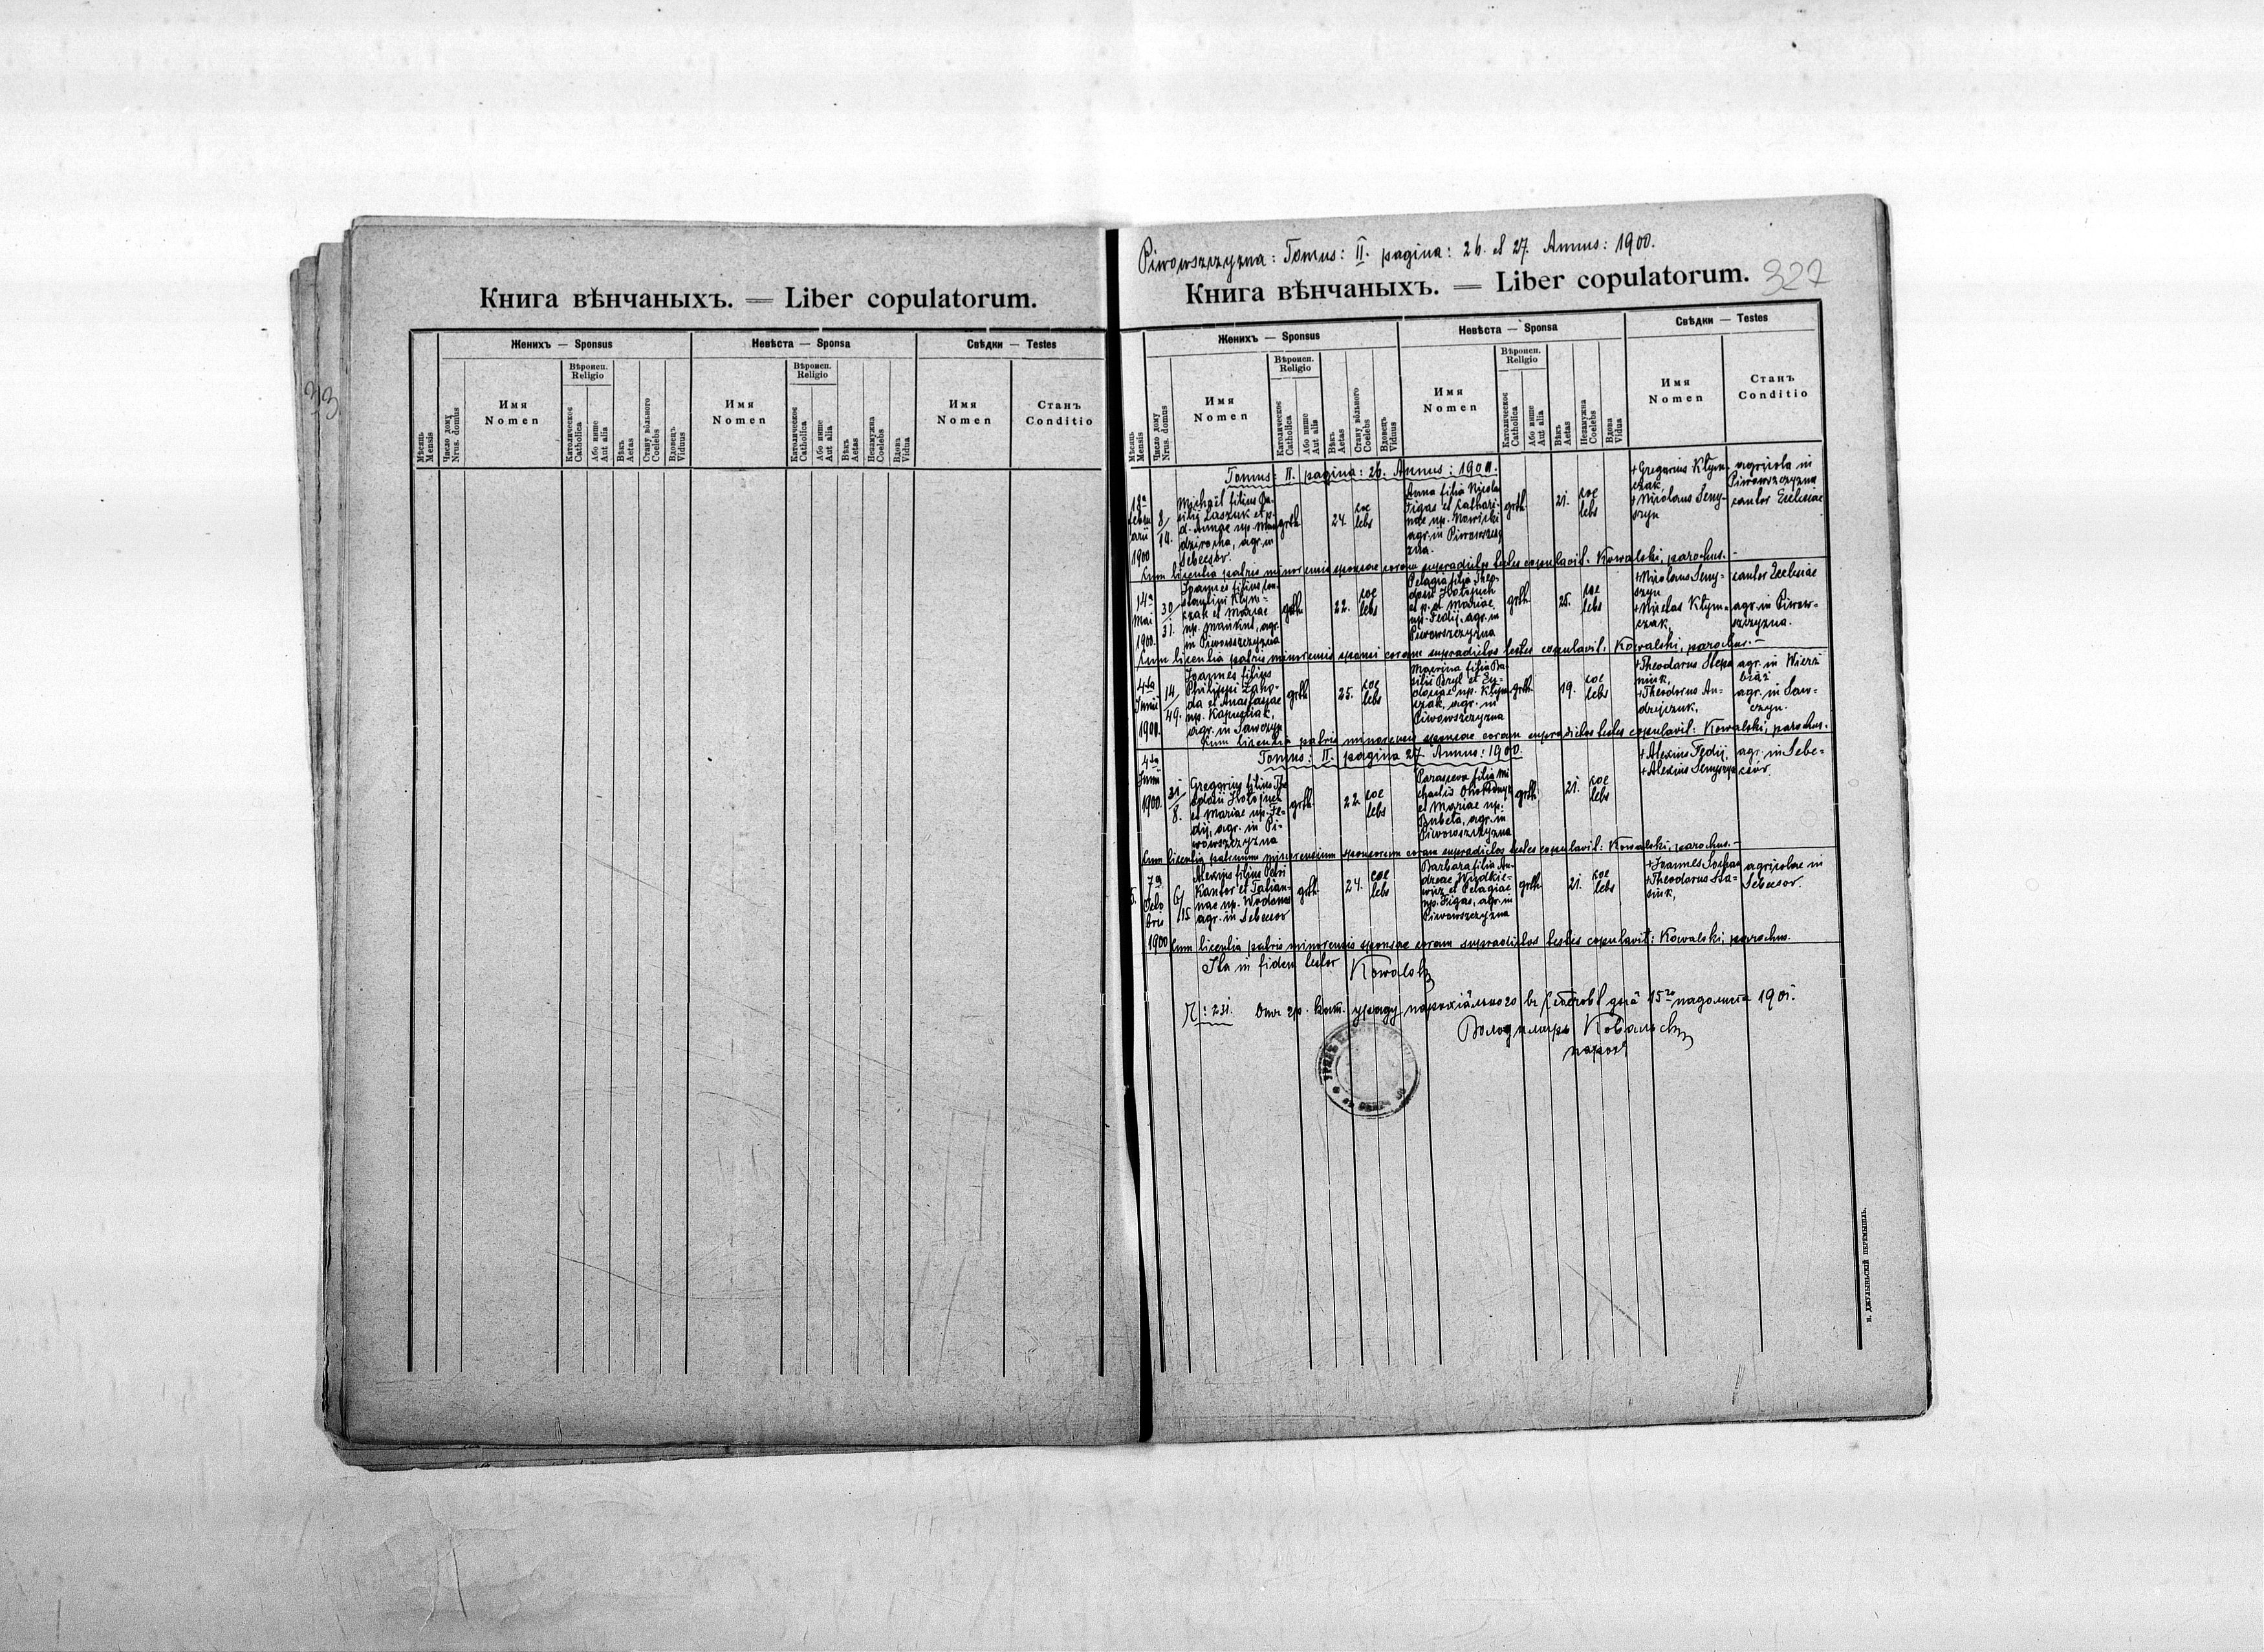 33
Книга вѣнчаныхъ. — Liber copulatorum.
Мѣсяць Mensis
Число дому Nrus. domus
Женихъ — Sponsus
Имя
Nomen
Вѣроисп.
Religio
Католическое Catholica
Або инше Aut alia
Вѣкъ Aetas
Стану вôльного Coelebs
Вдовецъ Viduus
Невѣста — Sponsa
Имя
Nomen
Вѣроисп.
Religio
Католическое Catholica
Або инше Aut alia
Вѣкъ Aetas
Незамужна Coelebs
Вдова Vidua
Свѣдки — Testes
Имя
Nomen
Станъ
Conditio
Piwowszczyzna: Tomus: II. pagina: 26. et 27. Annus: 1900.
Книга вѣнчаныхъ. — Liber copulatorum.
327
Мѣсяць Mensis
Число дому Nrus. domus
Женихъ — Sponsus
Имя
Nomen
Вѣроисп.
Religio
Католическое Catholica
Або инше Aut alia
Вѣкъ Aetas
Стану вôльного Coelebs
Вдовецъ Viduus
Невѣста — Sponsa
Имя
Nomen
Вѣроисп.
Religio
Католическое Catholica
Або инше Aut alia
Вѣкъ Aetas
Незамужна Coelebs
Вдова Vidua
Свѣдки — Testes
Имя
Nomen
Станъ
Conditio
Tomus: II. pagina: 26. Annus: 1900.
18a
febru
arii
1900
8/
14.
Michaël filius Ba-
silii Laszuk et p.
d. Annae np. Man
dzirocha, agr. in
Sebecsov.
grth
24.
coe
lebs
Anna filia Nicola
Figas et Cathari-
nae np. Nowicki
agr. in Piwowszczy
zna.
grth
21.
coe
lebs
+ Gregorius Klym-
czak,
+ Nicolaus Seny-
szyn
agricola in
Piwowszczyzna
cantor Ecclesiae
Cum licentia patris minorennis sponsae coram supradictos testes copulavit: Kowalski, parochus. —
14a
Mai
1900.
30/
31.
Joannes filius Con-
stantini Klym-
czak et Mariae
np. Mankut, agr.
in Piwowszczyzna
grth
22.
coe
lebs
Pelagia filia Theo-
dosii
et p. d. Mariae
np. Fedij, agr. in
Piwowszczyzna
grth
25.
coe
lebs
+ Nicolaus Seny-
szyn
+ Nicolas Klym-
czak,
cantor Ecclesiae
agr. in Piwow-
szczyzna.
Cum licentia patris minorennis sponsi coram supradictos testes copulavit: Kowalski, parochus. —
4ta
Junii
1900.
14/
49.
Joannes filius
Philippi Zaho-
da et Anastasiae
np. Kapuśniak,
agr. in Sawczyn
grth
25.
coe
lebs
Mavrina filia Ba-
silii Beryl et Eu-
dociae np. Klym
czak, agr. in
Piwowszczyzna
grth
19.
coe
lebs
+ Theodorus Stepa
niuk,
+ Theodorus An-
drejczuk,
agr. in Wierz
biąż
agr. in Saw-
czyn.
Cum licentia patris minorennis sponsae coram supradictos testes copulavit: Kowalski, parochus.
Tomus: II. pagina 27. Annus: 1900.
4ta
Junii
1900.
31/
8.
Gregorius filius Th
eodosii
et Mariae np. Fe-
dij, agr. in Pi-
wowszczyzna
grth
22.
coe
lebs
Parasceva filia Mi
chaelis
et Mariae np.
Bubeła, agr. in
Piwowszczyzna
grth
21.
coe
lebs
+ Alexius Fedij,
+ Alexius Senyszyn
agr. in Sebe-
czów.
Cum licentia patrum minorennium sponsorum coram supradictos testes copulavit: Kowalski, parochus. —
5.
7a
Octo
bris
1900
6/
15
Alexius filius Petri
Kantor et Tatian-
nae np.
agr. in Sebeczov
grth
24.
coe
lebs
Barbara filia An-
dreae Wydkie-
wicz et Pelagiae
np. Figas, agr. in
Piwowszczyzna
grth
21.
coe
lebs
+ Joannes Sochan
+ Theodorus Sta-
siuk,
agricolae in
Sebeczov.
Cum licentia patris minorennis sponsae coram supradictos testes copulavit: Kowalski, parochus.
Ita in fidem testor Kowalski
Ч: 231. Отъ гр. кат. уряду парохіяльного въ Себечовѣ дня 15го падолиста 1901.
Володимиръ Ковальскій
парохъ
УРЯДЪ
Н. ДЖУЛЫНЬСКІЙ ПЕРЕМЫШЛЬ.